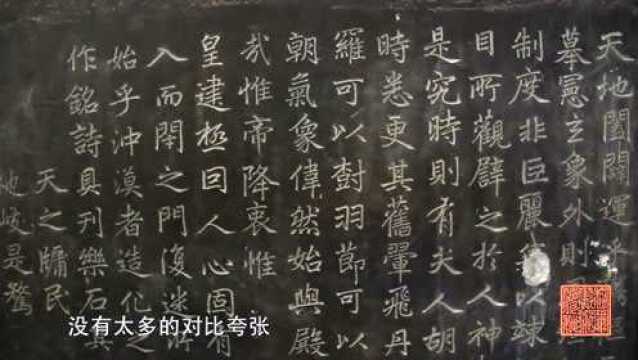 天地闔闢運乎
摹憲玄象外則
制度非巨麗無以竦
目所觀譬之於人神
是究時則有夫人胡
時悉更其舊翬飛丹
羅可以樹羽節可以
朝氣象偉然始與殿
哉惟帝降衷惟
皇建極囙人心固有
入而閉之門復迷
始乎沖漠者造化之
作銘詩具刊樂石其
天之牖民
他岐是騖
没有太多的对比夸张